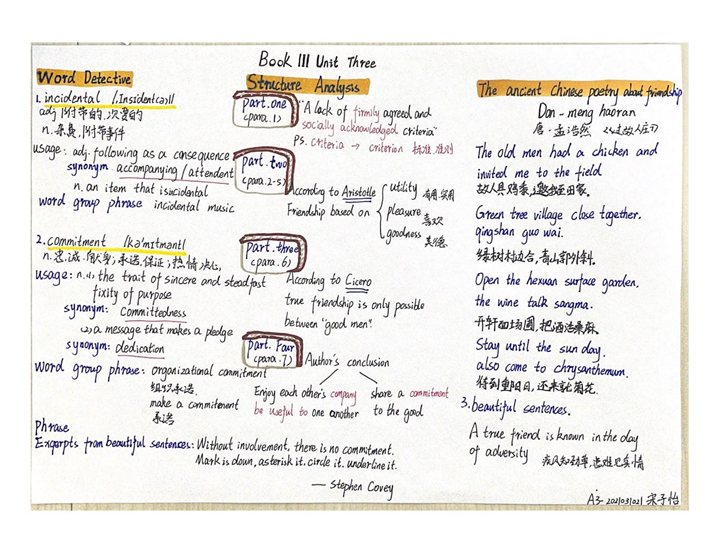 Book III Unit Three
Word Detective
1. incidental /ˌɪnsɪˈdentəl/
adj 附带的.次要的
n. 杂费.附带事件
usage: adj. following as a consequence
synonym accompanying / attendent
n. an item that is incidental
word group phrase incidental music
2. commitment /kəˈmɪtmənt/
n. 忠诚.信奉;承诺.保证;热情决心
usage: n.(1) the trait of sincere and steadfast
fixity of purpose
synonym: Committedness
(2) a message that makes a pledge
synonym: dedication
word group phrase: organizational commitment
组织承诺
make a commitement
承诺
Phrase
Exqerpts from beautiful sentences: Without involvement, there is no commitment.
Mark is down, asterisk it. circle it. underline it.
— Stephen Covey
Structure Analysis
part.one
(para.1)
"A lack of firmily agreed and
socially acknowledged criteria"
Ps. criteria → criterion 标准 准则
part.two
(para.2-5)
According to Aristotle
Friendship based on
utility 有用.实用
pleasure 喜欢
goodness 美德
part.three
(para.6)
According to Cicero
true friendship is only possible
between "good men".
part.Four
(para.7)
Author's conclusion
Enjoy each other's company
be useful to one another
share a commitment
to the good
The ancient Chinese poetry about friendship
Dan - meng haoran
唐·孟浩然 《过故人庄》
The old men had a chicken and
invited me to the field
故人具鸡黍,邀我至田家.
Green tree village close together.
qingshan guo wai.
绿树村边合,青山郭外斜.
Open the hexuan surface garden.
the wine talk sangma.
开轩面场圃,把酒话桑麻.
Stay until the sun day.
also come to chrysanthemum.
待到重阳日,还来就菊花.
3. beautiful sentences.
A true friend is known in the day
of adversity 疾风知劲草,患难见真情
A3- 2021031021 宋子怡